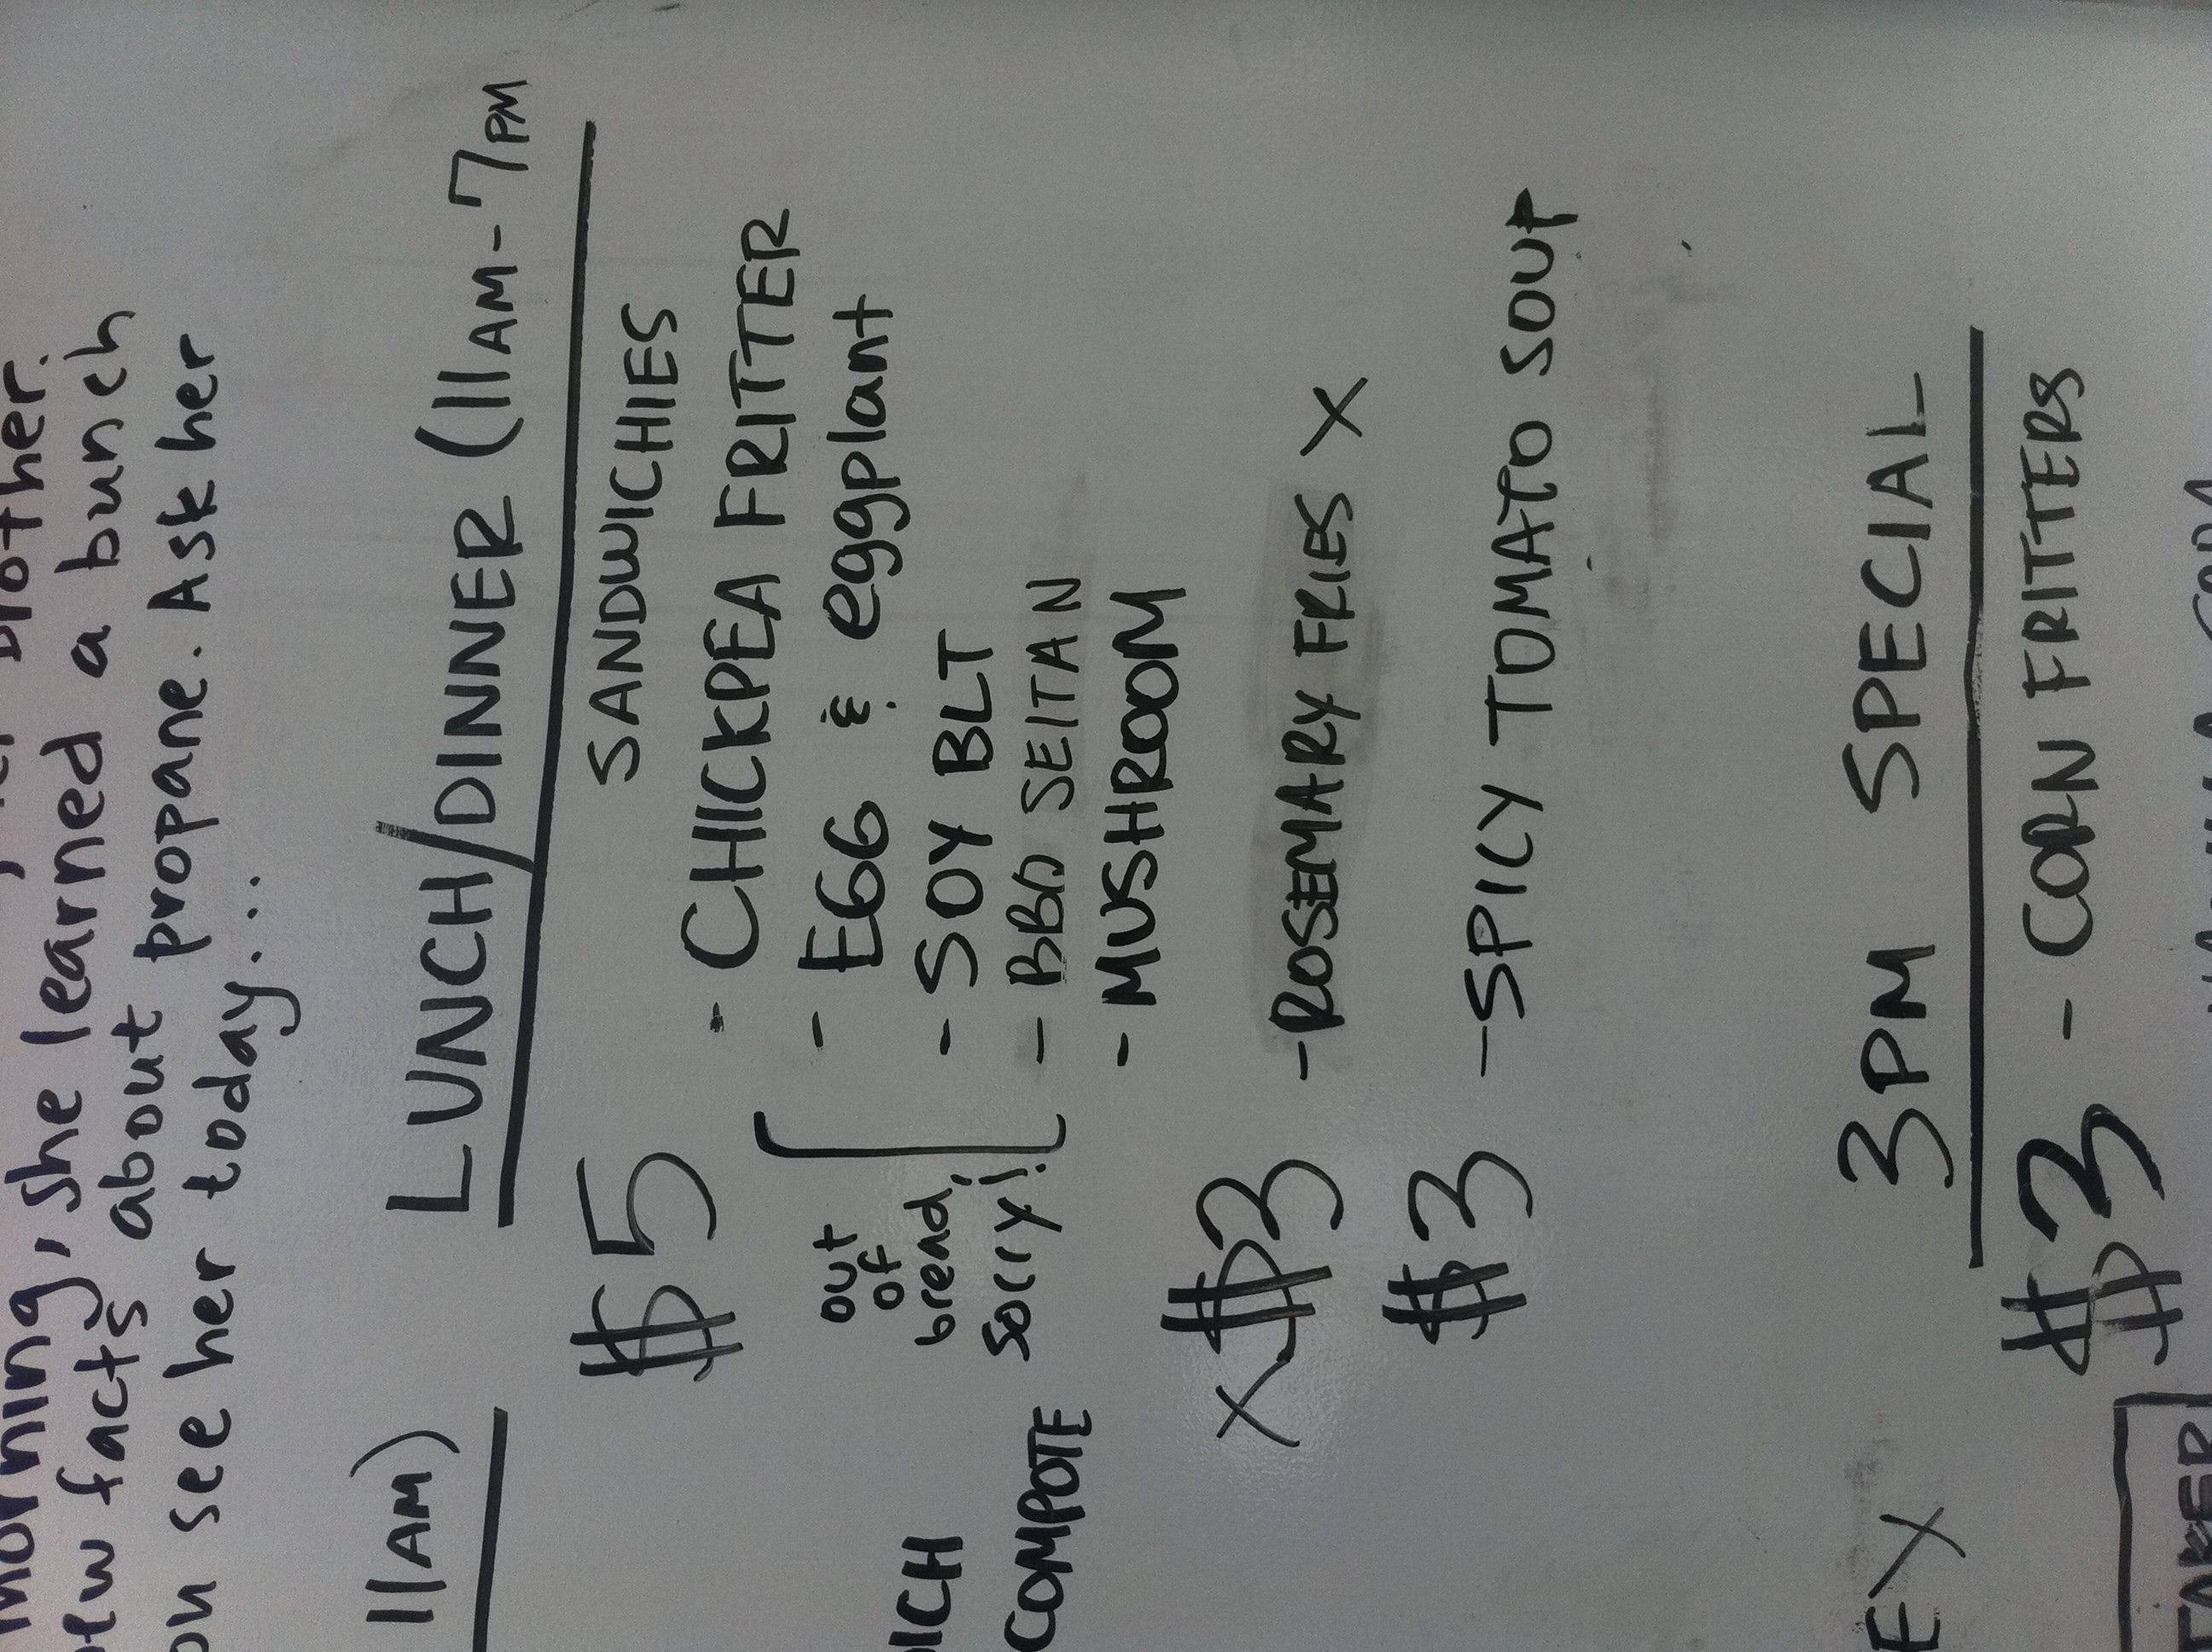 morning, she learned a bunch
new facts about propane. Ask her
see her today....
11AM)
LUNCH/DINNER (11AM-7PM
$5 SANDWICHIES
- CHICKPEA FRITTER
- EGG & eggplant
- SOY BLT
- BBQ SEITAN
- MUSHROOM
out
of
bread,
sorry!
COMPOTE
X $3 - ROSEMARY FRIES X
$3 - SPICY TOMATO SOUP
3PM SPECIAL
$3 - CORN FRITTERS